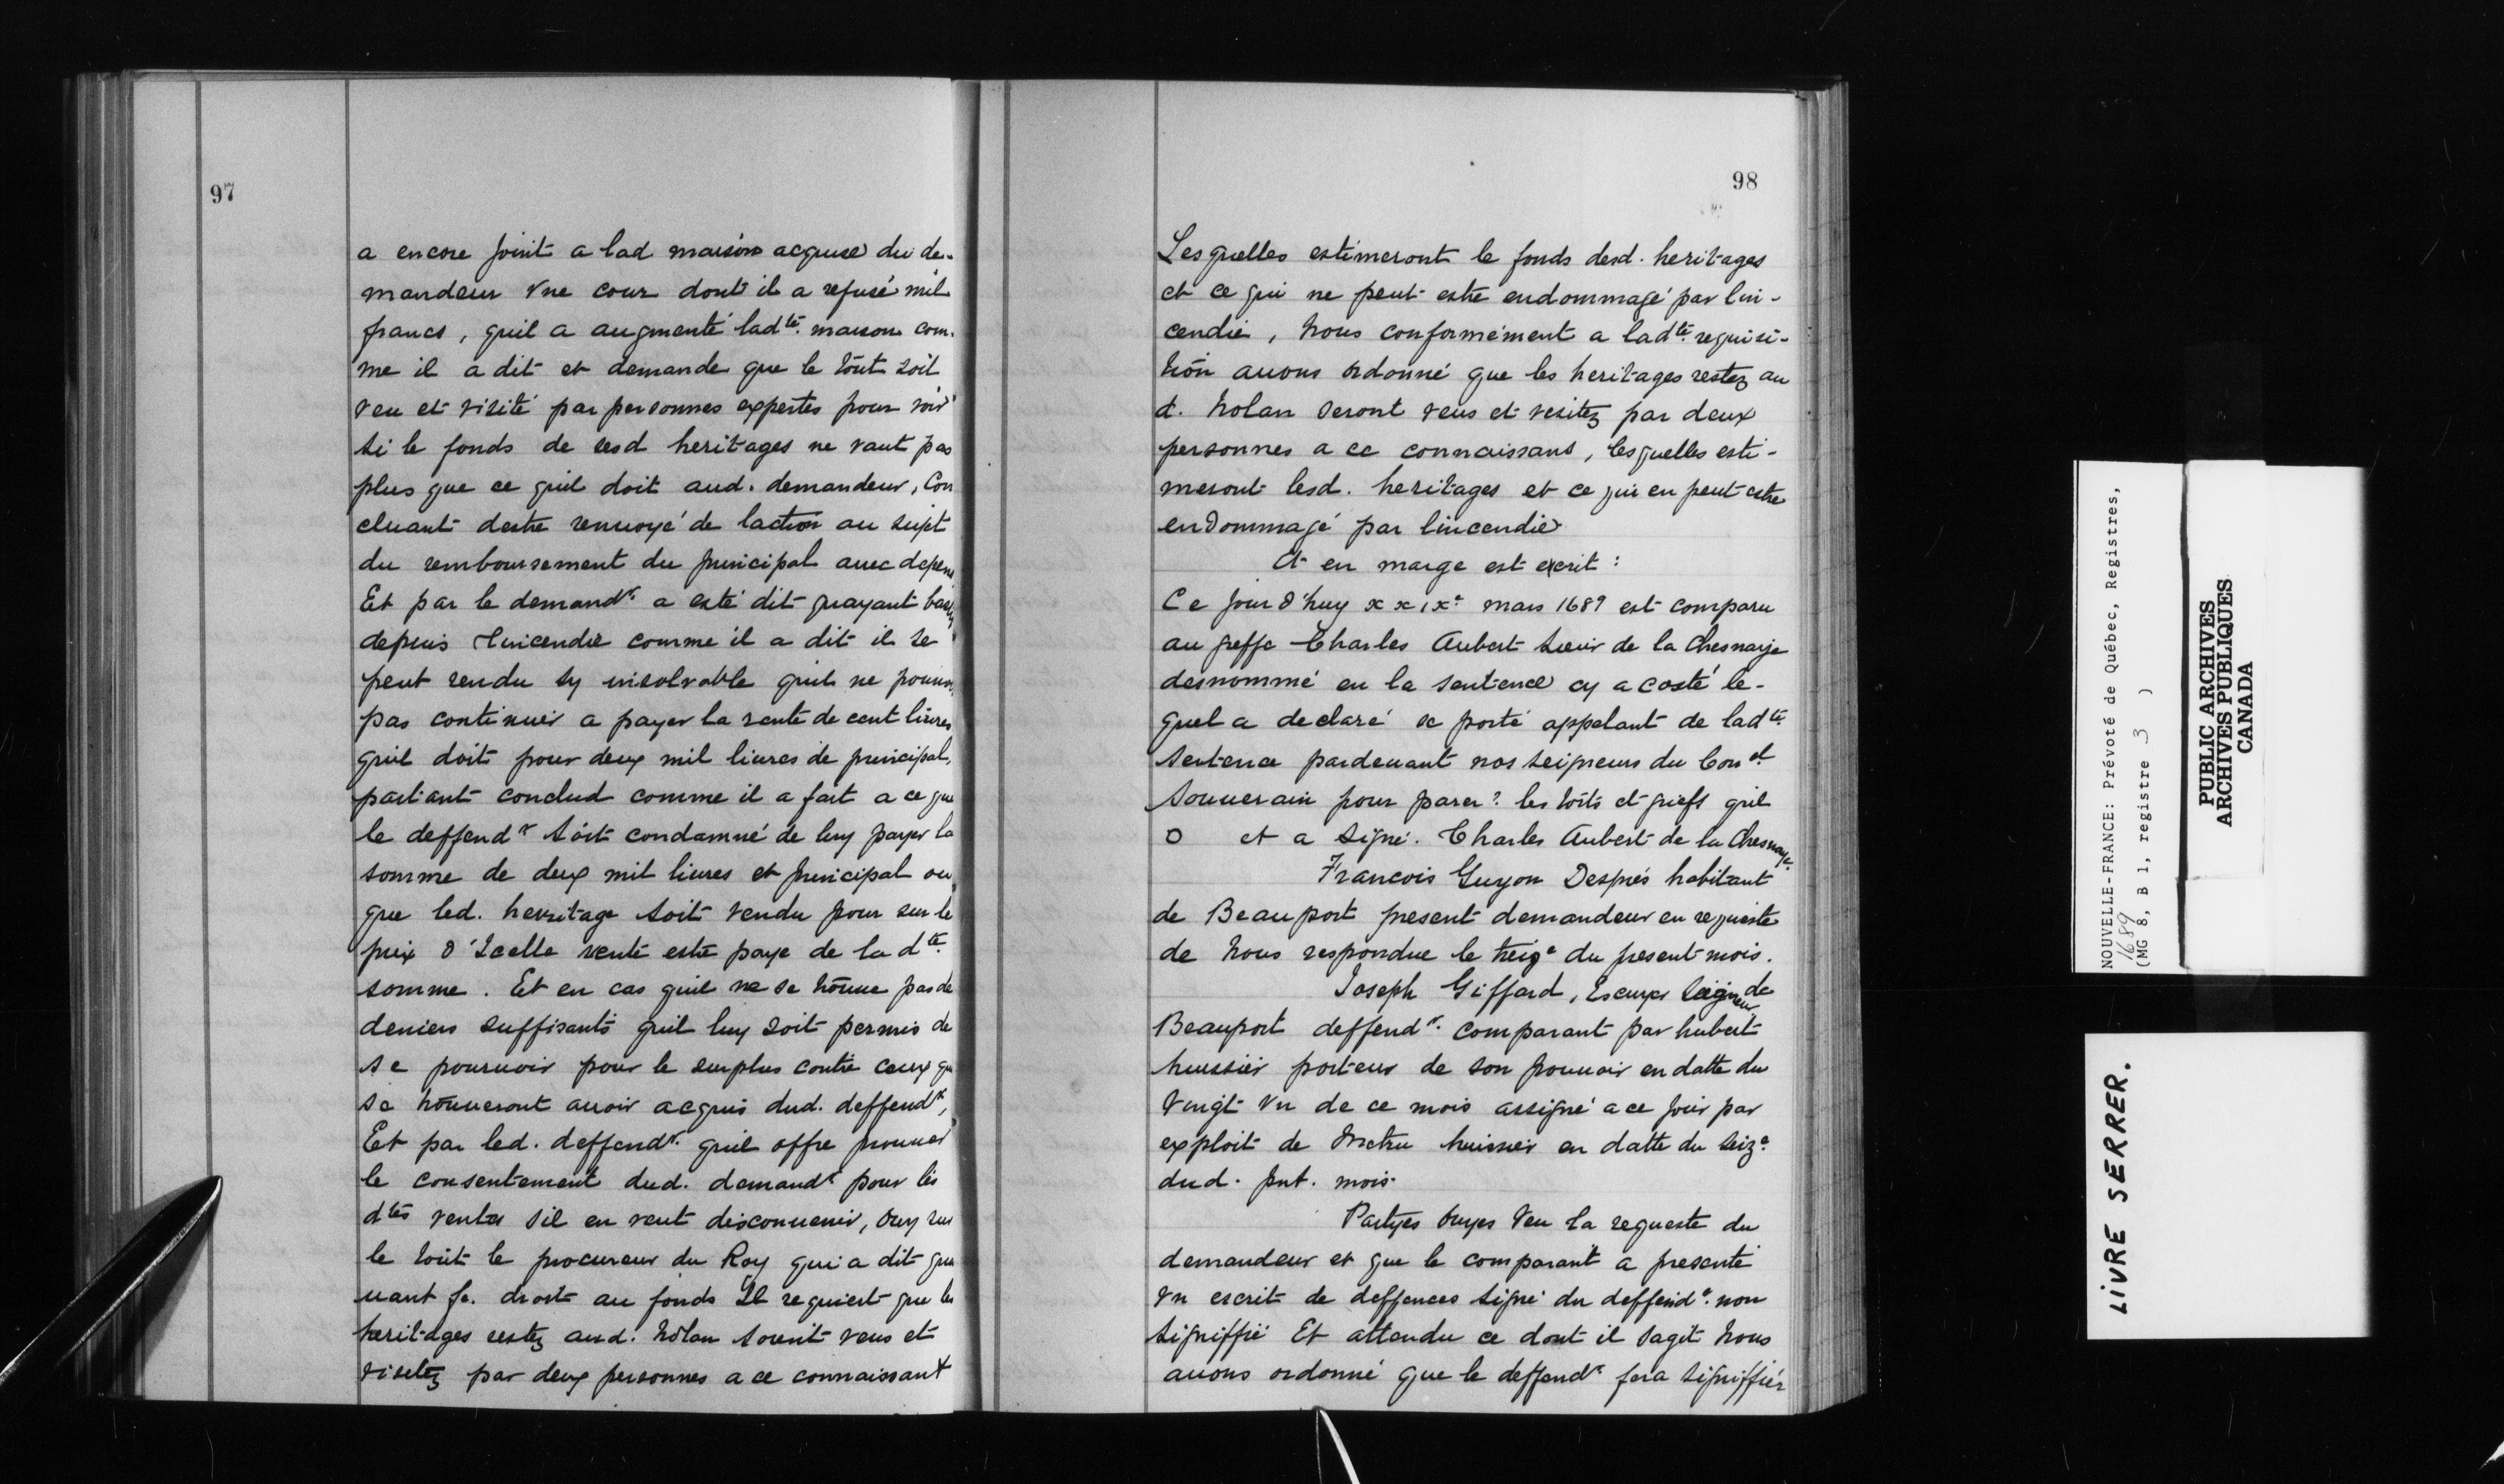 97
a encore joint a lad maison acquise du de-
mandeur vne cour dont il a refusé mil
francs, quil a augmenté ladte. maison com-
me il a dit et demande que le tout soit
veu et visité par personnes expertes pour voir
si le fonds de sesd heritages ne vaut pas
plus que ce quil doit aud. demandeur, Con
cluant destre renuoyé de laction au sujet
du remboursement du principal auec depens
Et par le demandr. a esté dit quayant basty
depuis lincendie comme il a dit il se
peut rendu sy insolvable quil ne pouuoit
pas continuer a payer la rente de cent liures
quil doit pour deux mil liures de principal,
partant conclud comme il a fait a ce que
le deffendr soit condamné de luy payer la
somme de deux mil liures et principal ou
que led. herritage soit vendu pour sur le
prix d'Icelle vente estre paye de la dte.
somme. Et en cas quil ne se trouue pas de
deniers suffisants quil luy soit permis de
se pouruoir pour le surplus contre ceux qui
se trouueront auoir acquis dud. deffendr,
Et par led. deffendr. quil offre prouuer
le consentement dud. demandr pour les
dtes ventes sil en veut disconuenir, Ouy sur
le tout le procureur du Roy qui a dit que
uant fe. droit au fonds Il requiert que les
heritages restez aud. Nolan soient veus et
visitez par deux personnes a ce connaissant
98
Lesquelles estimeront le fonds desd. heritages
et ce qui ne peut estre endommagé par lin-
cendie, Nous conformément a ladte. requisi-
tion auons ordonné que les heritages restez au
d. Nolan seront veus et visitez par deux
personnes a ce connaissans, lesquelles esti-
meront lesd. heritages et ce qui en peut estre
endommagé par lincendie
Et en marge est escrit :
Ce jour d'huy xxixe mars 1689 est comparu
au greffe Charles Aubert Sieur de la Chesnaye
desnommé en la sentence cy a costé le-
quel a declaré se porté appelant de ladte.
Sentence pardeuant nos seigneurs du Conel
Souuerain pour parer? les torts et griefs quil
O et a signé. Charles Aubert de la Chesnaye.
Francois Guyon Després habitant
de Beauport present demandeur en requeste
de Nous respondue le treize du present mois.
Joseph Giffard, Escuyer Seigneur de
Beauport deffendr. comparant par hubert
huissier porteur de son pouuoir en datte du
Vingt vn de ce mois assigné a ce jour par
exploit de Metru huissier en datte du seize
dud. pnt. mois.
Partyes ouyes Veu la requeste du
demandeur et que le comparant a presenté
vn escrit de deffences signé du deffendr. non
signiffié Et attendu ce dont il sagit Nous
auons ordonné que le deffendr fera signiffier
NOUVELLE-FRANCE: Prévoté de Québec, Registres,
1689
(MG 8, B 1, registre 3 )
PUBLIC ARCHIVES
ARCHIVES PUBLIQUES
CANADA
LIVRE SERRER.